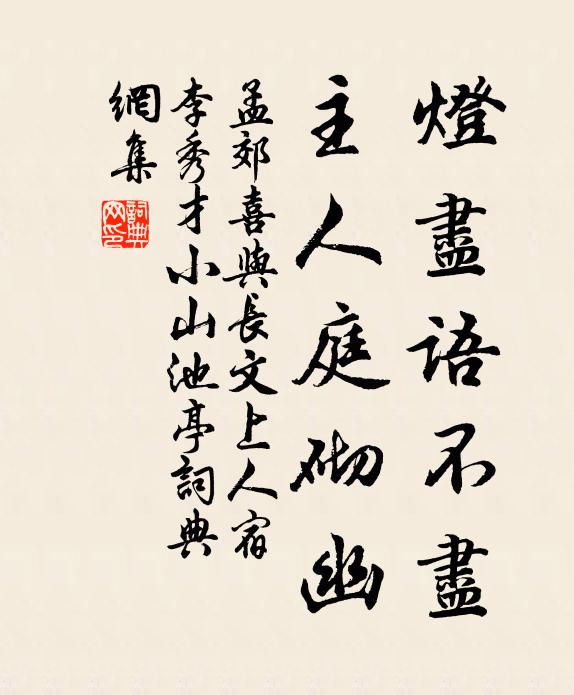 燈盡語不盡
主人庭砌幽
孟郊喜與長文上人宿
李秀才小山池亭詞典
網集
詞典
网印